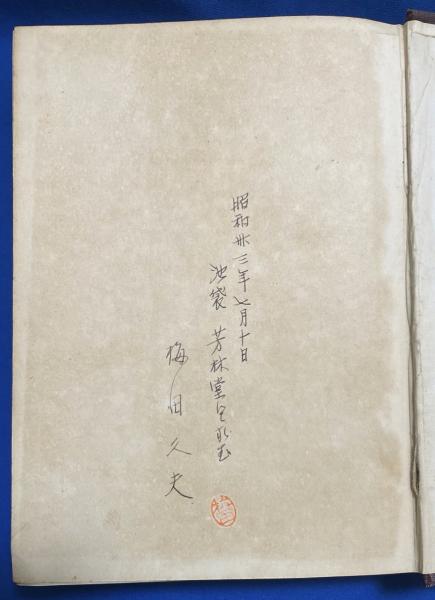 昭和卅三年七月十日
池袋 芳林堂にて求む
梅田久夫